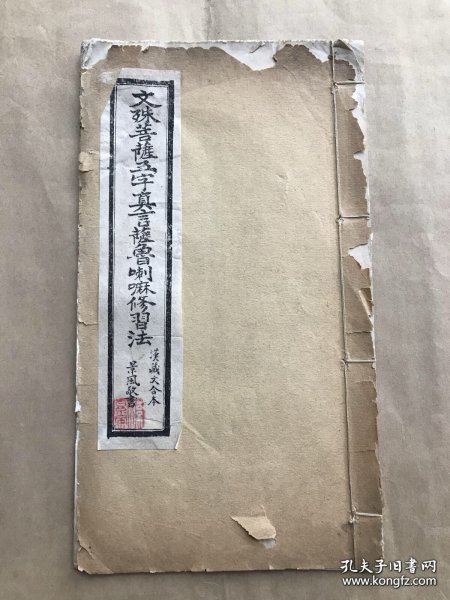 文殊菩薩五字真言薩魯喇嘛修習法
漢藏文合本
景風敬書
孔夫子旧书网
www.kongfz.com